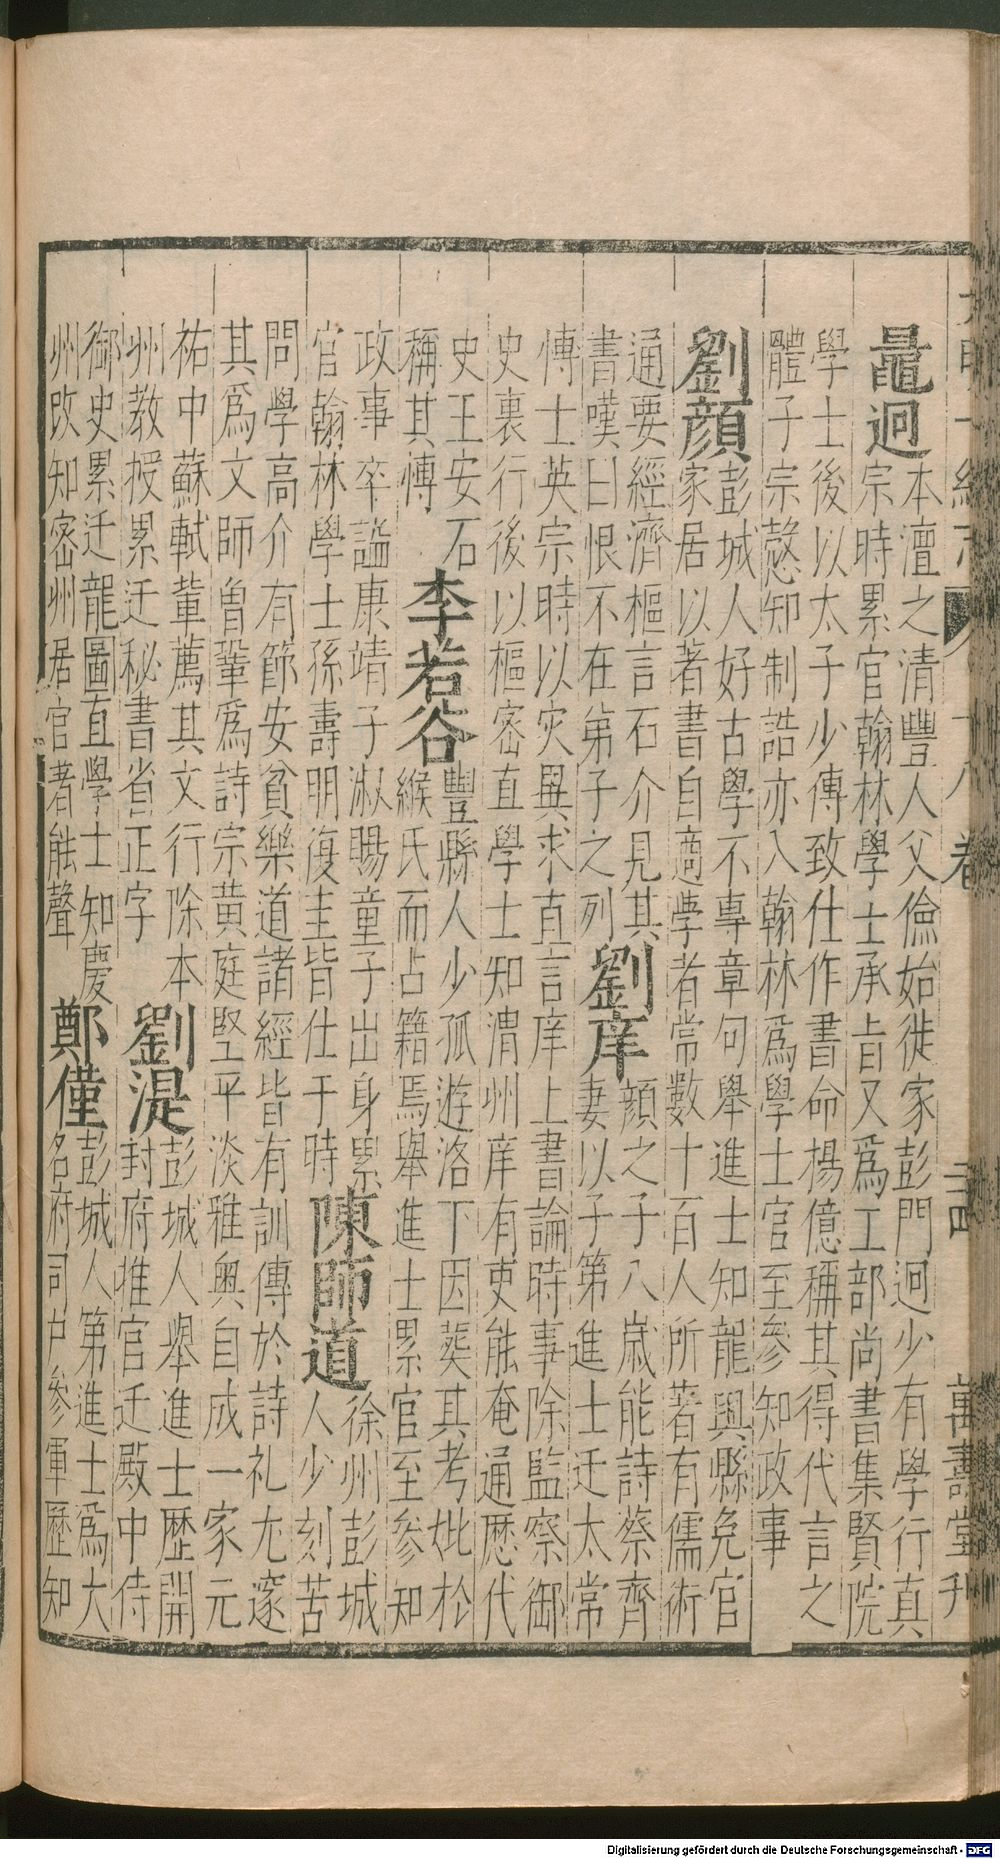 大明一統志 卷十八 二四 萬壽堂刊
鼂迥
本澶之清豐人父儉始徙家彭門迥少有學行真
宗時累官翰林學士承旨又爲工部尚書集賢院
學士後以太子少傅致仕作書命楊億稱其得代言之
體子宗愨知制誥亦入翰林爲學士官至參知政事
劉顏
彭城人好古學不專章句舉進士知龍興縣免官
家居以著書自適學者常數十百人所著有儒術
通要經濟樞言石介見其
書嘆曰恨不在弟子之列
劉庠
顏之子八歲能詩蔡齊
妻以子第進士迁太常
博士英宗時以灾異求直言庠上書論時事除監察御
史裏行後以樞密直學士知渭州庠有吏能奄通歷代
史王安石
稱其博
李若谷
豐縣人少孤遊洛下因葬其考妣於
緱氏而占籍焉舉進士累官至參知
政事卒謚康靖子淑賜童子出身累
官翰林學士孫壽明復圭皆仕于時
陳師道
徐州彭城
人少刻苦
問學高介有節安貧樂道諸經皆有訓傳於詩礼尤邃
其爲文師曾鞏爲詩宗黄庭堅平淡雅奥自成一家元
祐中蘇軾輩薦其文行除本
州教授累迁秘書省正字
劉湜
彭城人舉進士歷開
封府推官迁殿中侍
御史累迁龍圖直學士知慶
州改知密州居官著能聲
鄭僅
彭城人第進士爲大
名府司户參軍歷知
Digitalisierung gefördert durch die Deutsche Forschungsgemeinschaft - DFG